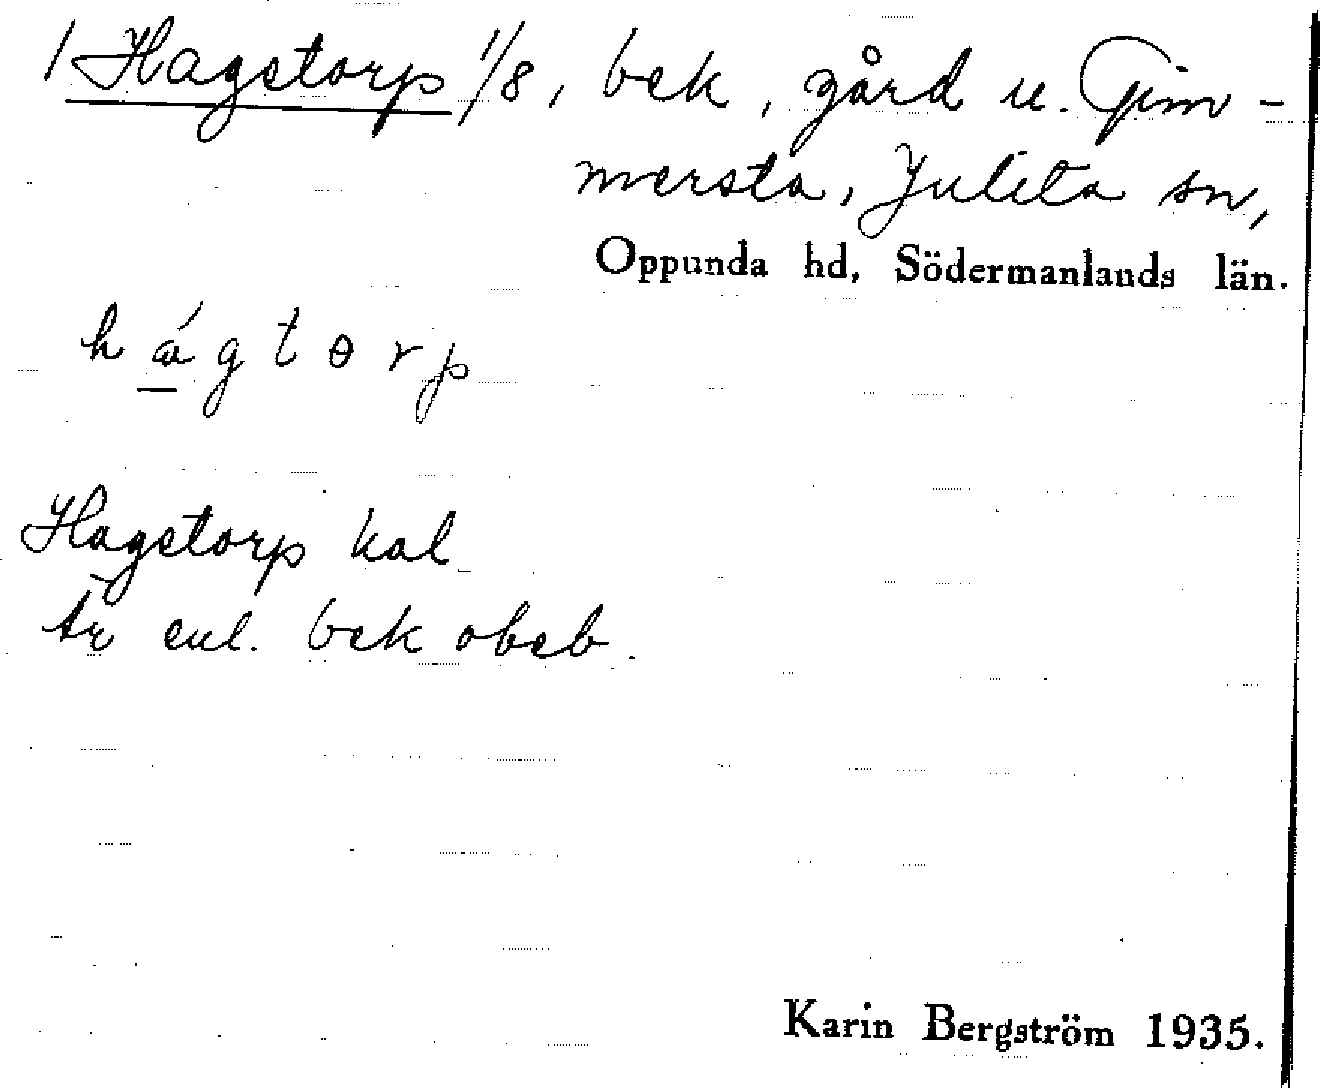 1 Hagstorp 1/8, bek, gård u. Gim-
mersta, Julita sn,
Oppunda hd, Södermanlands län.
hágtorp
Hagstorp kal
Är enl. bek obeb.
Karin Bergström 1935.